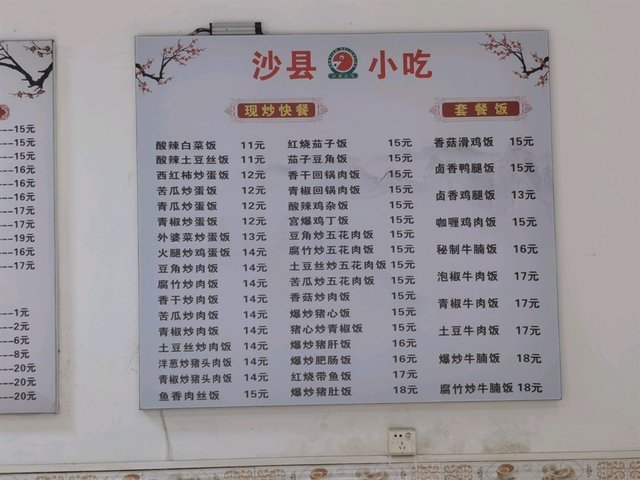 沙县小吃
现炒快餐
酸辣白菜饭 11元
酸辣土豆丝饭 11元
西红柿炒蛋饭 12元
苦瓜炒蛋饭 12元
青瓜炒蛋饭 12元
青椒炒蛋饭 12元
外婆菜炒蛋饭 13元
火腿炒鸡蛋饭 14元
豆角炒肉饭 14元
腐竹炒肉饭 14元
香干炒肉饭 14元
苦瓜炒肉饭 14元
青椒炒肉饭 14元
土豆丝炒肉饭 14元
洋葱炒猪头肉饭 14元
青椒炒猪头肉饭 14元
鱼香肉丝饭 15元
红烧茄子饭 15元
茄子豆角饭 15元
香干回锅肉饭 15元
青椒回锅肉饭 15元
酸辣鸡杂饭 15元
宫爆鸡丁饭 15元
豆角炒五花肉饭 15元
腐竹炒五花肉饭 15元
土豆丝炒五花肉饭 15元
苦瓜炒五花肉饭 15元
香菇炒肉饭 15元
爆炒猪心饭 15元
猪心炒青椒饭 15元
爆炒猪肝饭 16元
爆炒肥肠饭 16元
红烧带鱼饭 17元
爆炒猪肚饭 18元
套餐饭
香菇滑鸡饭 15元
卤香鸭腿饭 15元
卤香鸡腿饭 13元
咖喱鸡肉饭 15元
秘制牛腩饭 16元
泡椒牛肉饭 17元
青椒牛肉饭 17元
土豆牛肉饭 17元
爆炒牛腩饭 18元
腐竹炒牛腩饭 18元
15元
15元
15元
16元
16元
17元
17元
17元
19元
16元
17元
1元
2元
6元
8元
20元
20元